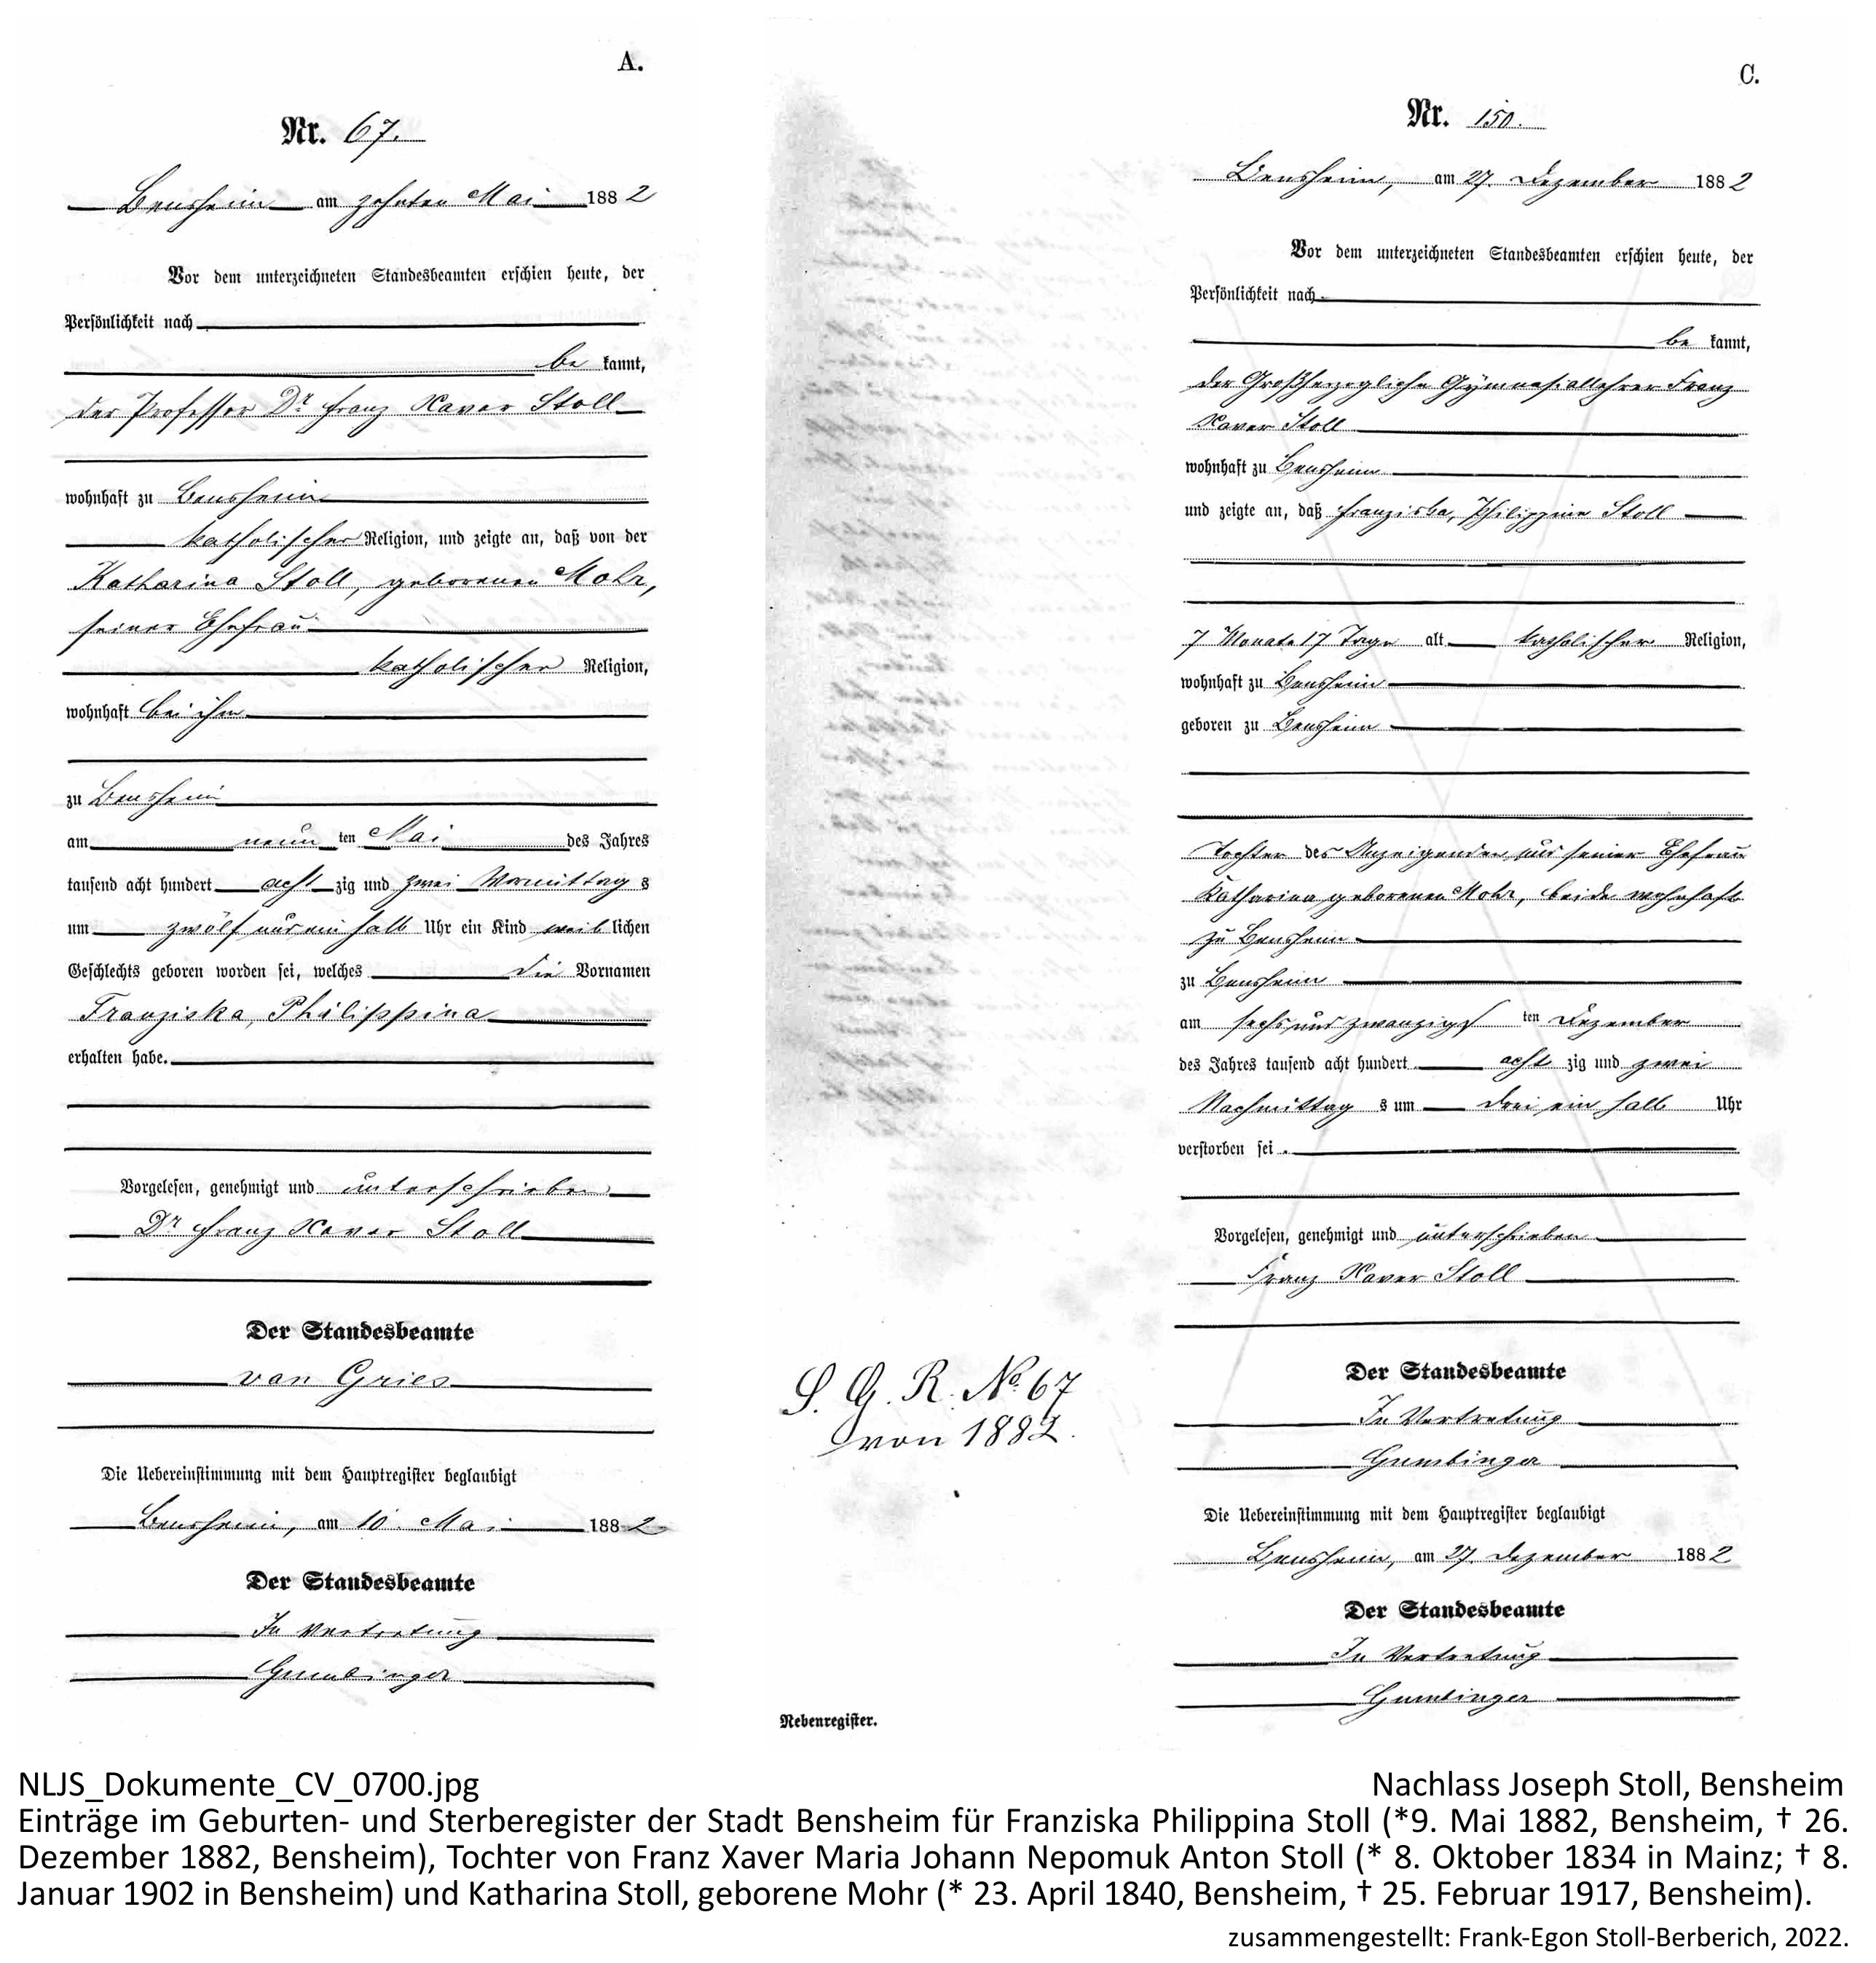 A.
Nr. 67.
Bensheim am zehnten Mai 1882
Vor dem unterzeichneten Standesbeamten erschien heute, der
Persönlichkeit nach
be kannt,
der Professor Dr. Franz Xaver Stoll
wohnhaft zu Bensheim
katholischer Religion, und zeigte an, daß von der
Katharina Stoll, geborenen Mohr,
seiner Ehefrau
katholischer Religion,
wohnhaft bei ihm
zu Bensheim
am neun ten Mai des Jahres
tausend acht hundert acht zig und zwei Vormittag s
um zwölf und ein halb Uhr ein Kind weib lichen
Geschlechts geboren worden sei, welches die Vornamen
Franziska, Philippina
erhalten habe.
Vorgelesen, genehmigt und unterschrieben
Dr Franz Xaver Stoll
Der Standesbeamte
van Gries
Die Uebereinstimmung mit dem Hauptregister beglaubigt
Bensheim, am 10. Mai 1882
Der Standesbeamte
In Vertretung
Gumbinger
S. G. R. No. 67
von 1882.
Nebenregister.
C.
Nr. 150.
Bensheim, am 27. Dezember 1882
Vor dem unterzeichneten Standesbeamten erschien heute, der
Persönlichkeit nach
be kannt,
der Großherzogliche Gymnasiallehrer Franz
Xaver Stoll
wohnhaft zu Bensheim
und zeigte an, daß Franziska, Philippina Stoll
7 Monate 17 Tage alt katholischer Religion,
wohnhaft zu Bensheim
geboren zu Bensheim
Tochter des Anzeigenden und seiner Ehefrau
Katharina geborenen Mohr, beide wohnhaft
zu Bensheim
zu Bensheim
am sechs und zwanzigs ten Dezember
des Jahres tausend acht hundert acht zig und zwei
Nachmittag s um drei ein halb Uhr
verstorben sei.
Vorgelesen, genehmigt und unterschrieben
Franz Xaver Stoll
Der Standesbeamte
In Vertretung
Gumbinger
Die Uebereinstimmung mit dem Hauptregister beglaubigt
Bensheim, am 27. Dezember 1882
Der Standesbeamte
In Vertretung
Gumbinger
NLJS_Dokumente_CV_0700.jpg Nachlass Joseph Stoll, Bensheim
Einträge im Geburten- und Sterberegister der Stadt Bensheim für Franziska Philippina Stoll (*9. Mai 1882, Bensheim, † 26.
Dezember 1882, Bensheim), Tochter von Franz Xaver Maria Johann Nepomuk Anton Stoll (* 8. Oktober 1834 in Mainz; † 8.
Januar 1902 in Bensheim) und Katharina Stoll, geborene Mohr (* 23. April 1840, Bensheim, † 25. Februar 1917, Bensheim).
zusammengestellt: Frank-Egon Stoll-Berberich, 2022.